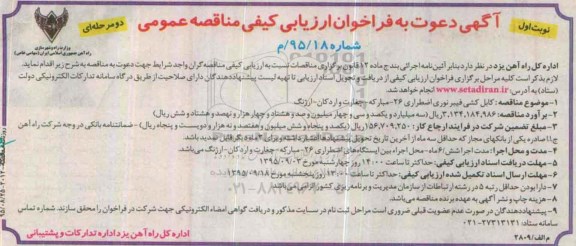 نوبت اول
آگهی دعوت به فراخوان ارزیابی کیفی مناقصه عمومی
دو مرحله‌ای
شماره ۹۵/۱۸/م
وزارت راه و شهرسازی
راه آهن جمهوری اسلامی ایران (سهامی خاص)
اداره کل راه آهن یزد در نظر دارد بنابر آئین‌نامه اجرائی بند ج ماده ۱۲ قانون برگزاری مناقصات نسبت به ارزیابی کیفی مناقصه‌گران واجد شرایط جهت دعوت به مناقصه به شرح زیر اقدام نماید.
لازم بذکر است کلیه مراحل برگزاری فراخوان ارزیابی کیفی از دریافت و تحویل اسناد ارزیابی تا تهیه لیست پیشنهاددهندگان دارای صلاحیت از طریق درگاه سامانه تدارکات الکترونیکی دولت
(ستاد) به آدرس: www.setadiran.ir انجام خواهد شد.
۱- موضوع مناقصه: کابل کشی فیبر نوری اضطراری ۲۶- مبارکه چهارت و اردکان - ارژنگ
۲- برآورد مناقصه: ۳,۱۳۴,۱۸۴,۹۸۶ ریال (سه میلیارد و یکصد و سی و چهار میلیون و صد و هشتاد و چهار هزار و نهصد و هشتاد و شش ریال)
۳- مبلغ تضمین شرکت در فرآیند ارجاع کار: ۱۵۶,۷۰۹,۲۵۰ ریال (یکصد و پنجاه و شش میلیون و هفتصد و نه هزار و دویست و پنجاه ریال) - ضمانتنامه بانکی در وجه شرکت راه آهن
۴- مدت و محل اجرا: مدت اجرا شش /۶ ماه - محل اجراء بین ایستگاه‌های اضطراری ۲۶ - مبارکه - چهارت و اردکان - ارژنگ می‌باشد.
۵- مهلت دریافت اسناد ارزیابی کیفی: حداکثر تا ساعت ۱۴:۰۰ روز چهارشنبه مورخ ۱۳۹۵/۰۹/۰۳
۶- مهلت ارسال اسناد تکمیل شده ارزیابی کیفی: حداکثر تا ساعت ۱۳:۰۰ روز پنجشنبه مورخ ۱۳۹۵/۰۹/۱۸
۷- دارا بودن حداقل رتبه ۵ در رشته ارتباطات از سازمان مدیریت و برنامه ریزی کشور الزامی می‌باشد.
۸- هزینه چاپ و نشر آگهی به عهده برنده مناقصه می‌باشد.
۹- پیشنهاددهندگان در صورت عدم عضویت قبلی ضروری است مراحل ثبت نام در سایت مذکور و دریافت گواهی امضاء الکترونیکی جهت شرکت در فراخوان را محقق سازند. شماره تماس
سامانه ستاد: ۲۷۳۱۳۱۳۱-۰۲۱
م الف/۲۸۰۹
اداره کل راه آهن یزد اداره تدارکات و پشتیبانی